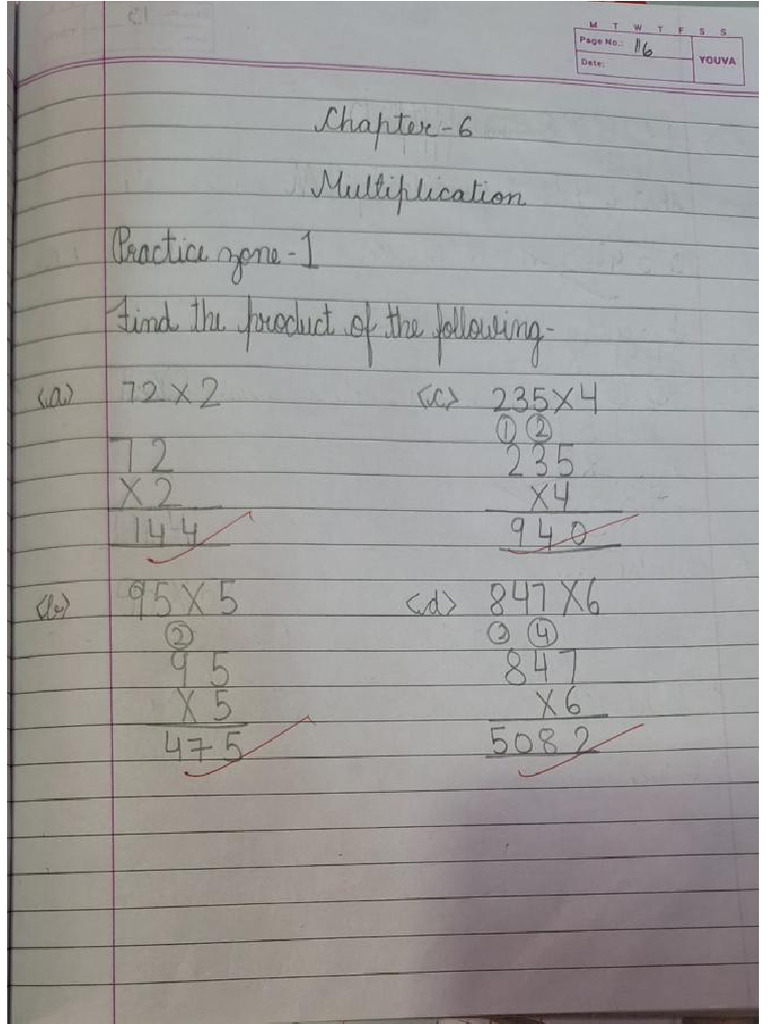 M T W T F S S
Page No.: 16
YOUVA
Date:
Chapter-6
Multiplication
Practice zone-1
Find the product of the following-
(a) 72×2
72
×2
144
(c) 235×4
① ②
235
×4
940
(b) 95×5
②
95
×5
475
(d) 847×6
② ④
847
×6
5082